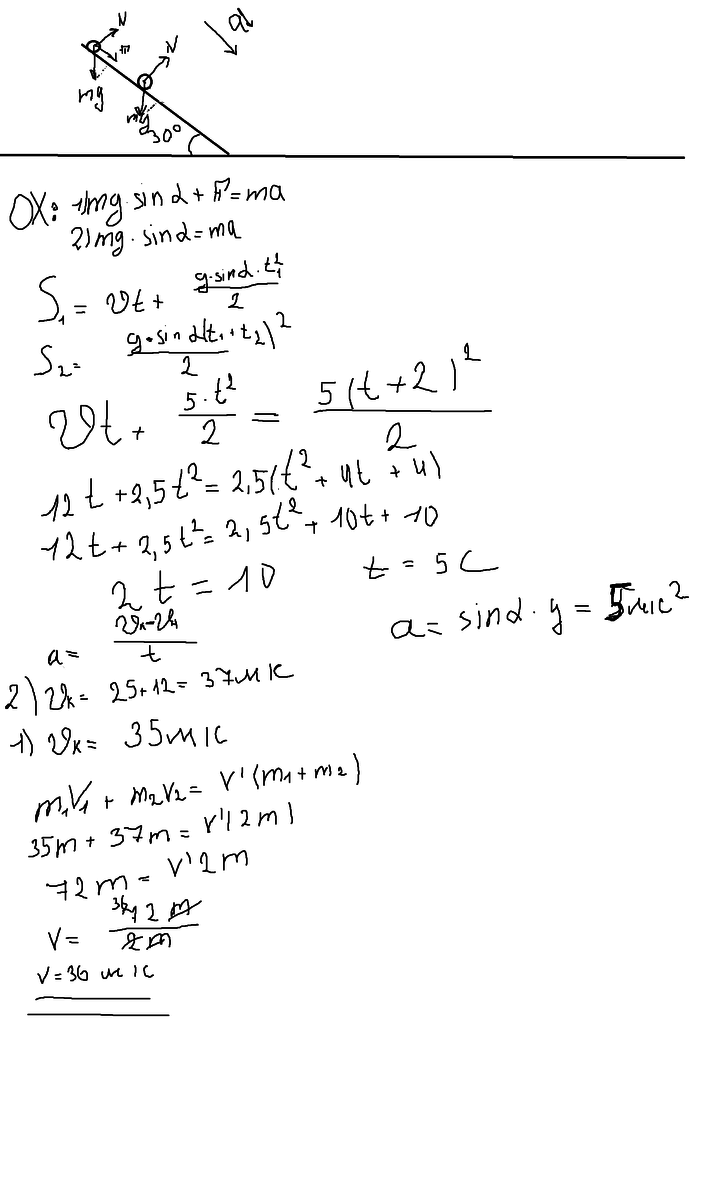 N
N
a
F
mg
mg
30°
OX: 1) mg·sin α + F = ma
2) mg·sin α = ma
S₁ = υt + g·sin α·t₁²/2
S₂ = g·sin α(t₁+t₂)²/2
υt + 5·t²/2 = 5(t+2)²/2
12t + 2,5t² = 2,5(t² + 4t + 4)
12t + 2,5t² = 2,5t² + 10t + 10
2t = 10 t = 5 с
a = sin α·g = 5 м/с²
a = (υк-υн)/t
2) υк = 25+12 = 37 м/с
1) υк = 35 м/с
m₁V₁ + m₂V₂ = V'(m₁+m₂)
35m + 37m = V'(2m)
72m = V'2m
V = 36 72m/2m
V = 36 м/с